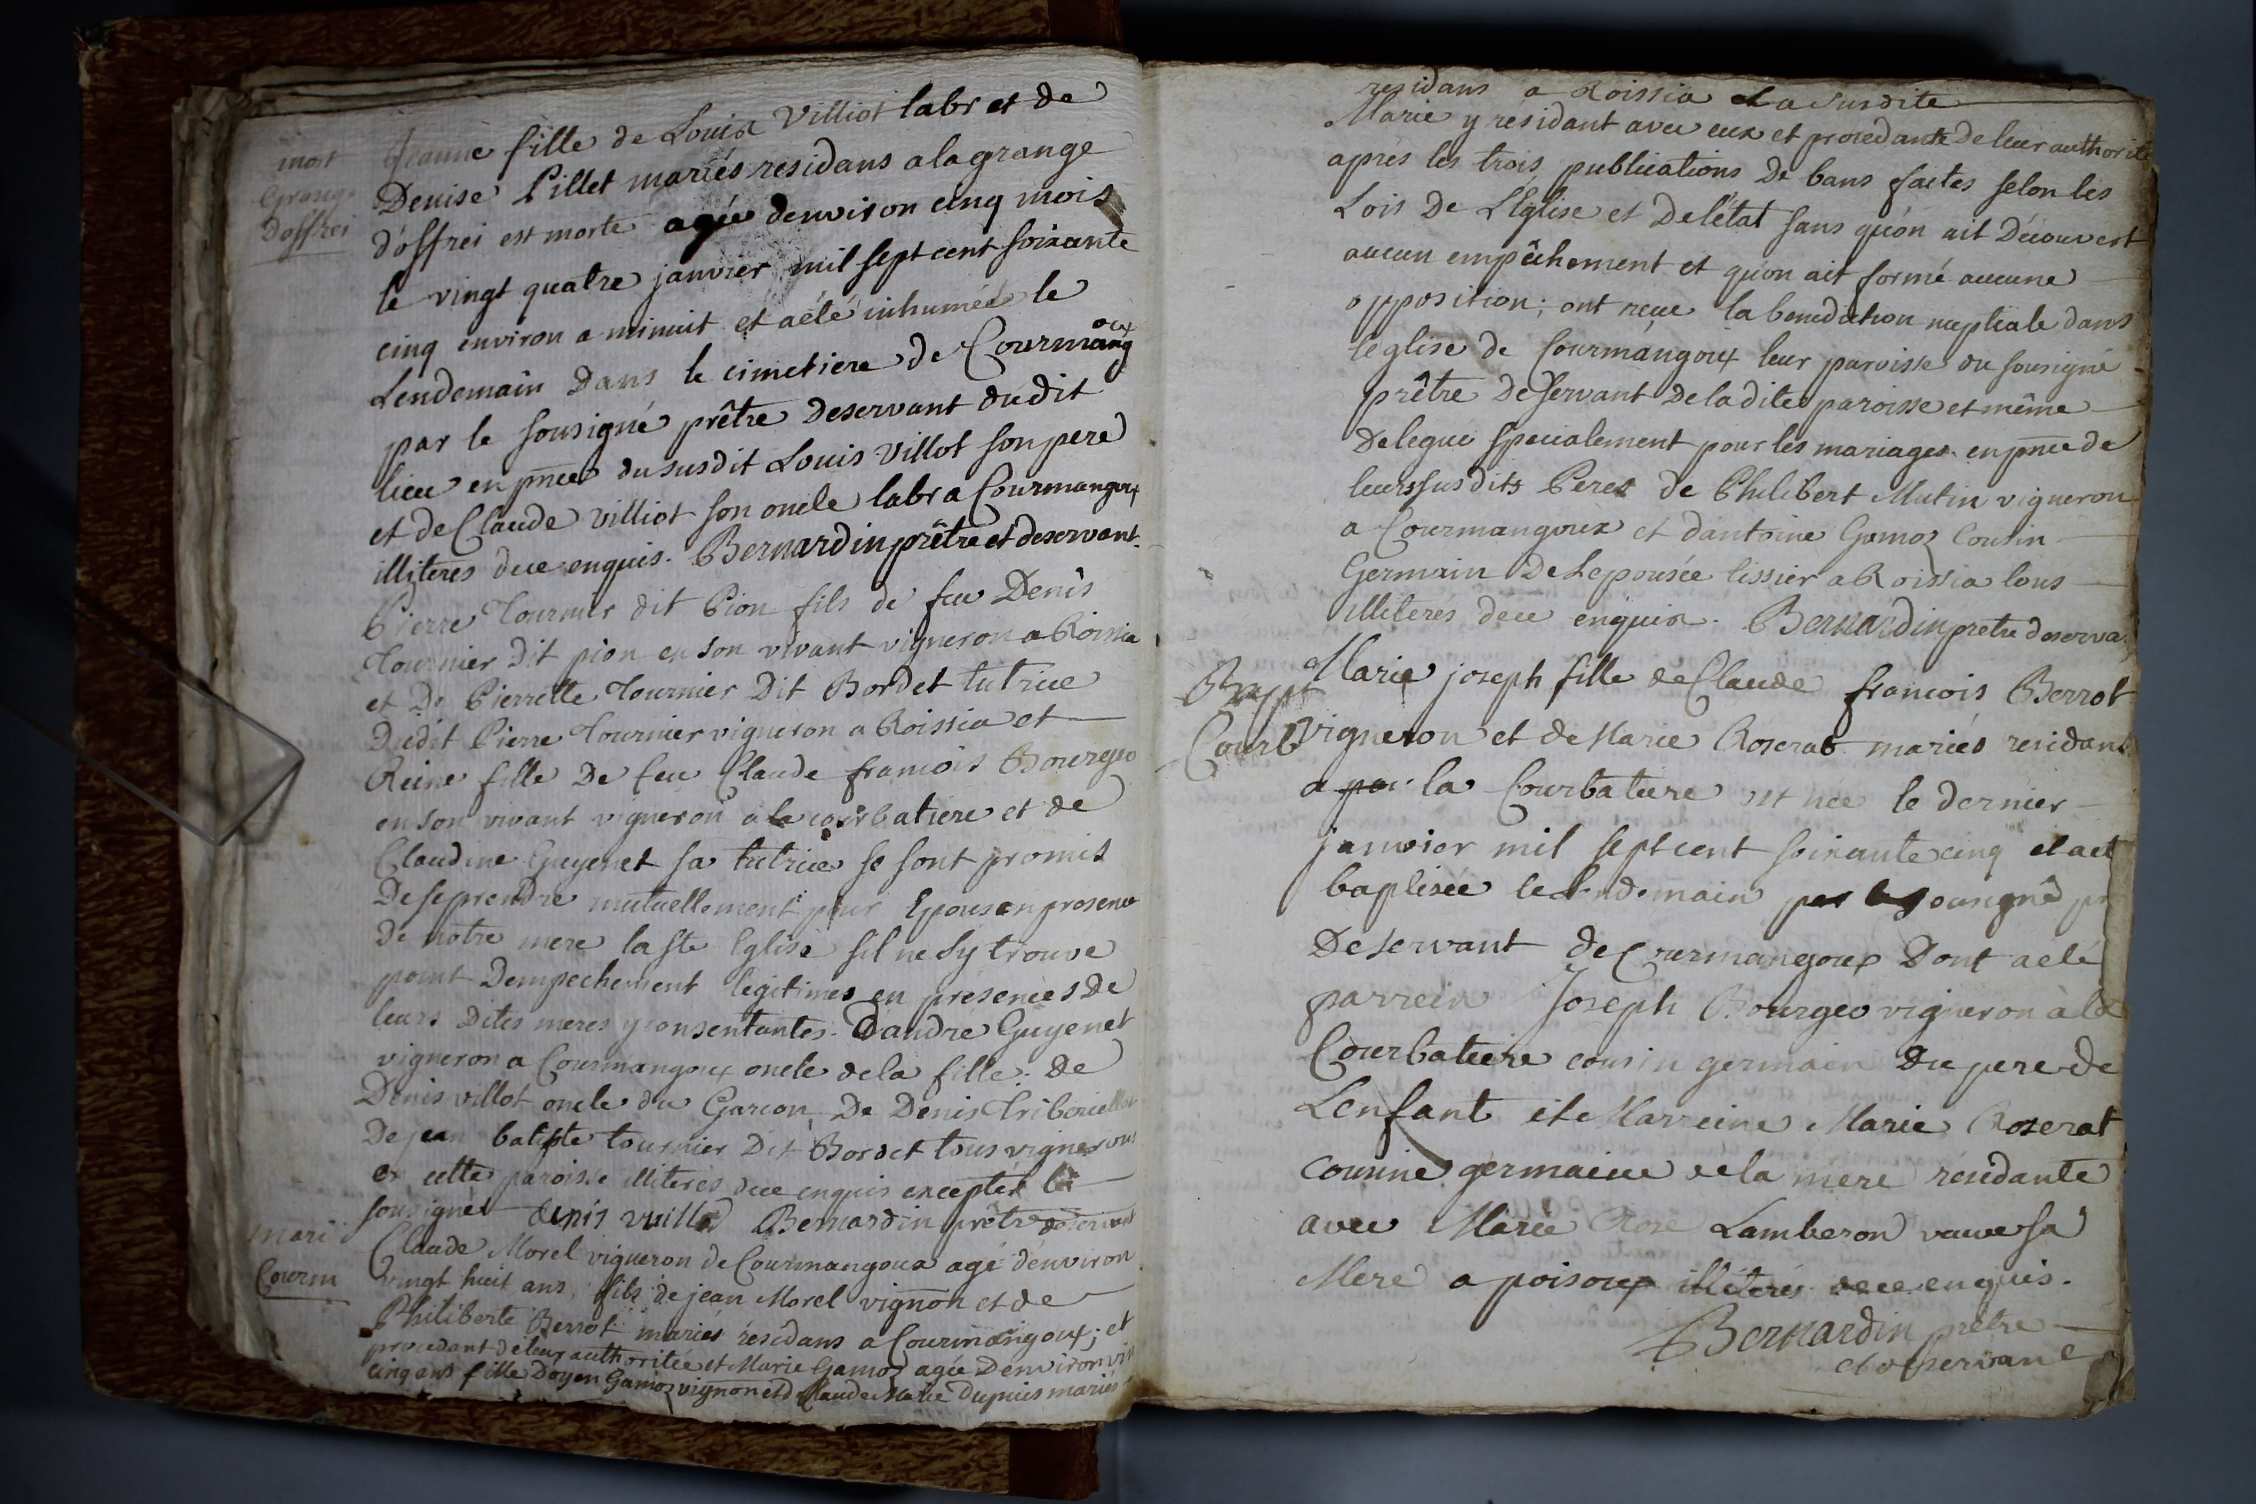 mort
Grange
Doffrei
Jeanne fille de Louis Villiot labr et de
Denise Pillet mariés residans a la grange
d'offrei est morte agée denviron cinq mois
le vingt quatre janvier mil sept cent soixante
cinq environ a minuit et a été inhumée le
Lendemain Dans le cimetiere de Courmangoux
par le sousigné prêtre Deservant dudit
lieu en pnce du susdit Louis Villot son pere
et de Claude Villiot son oncle labr a Courmangoux
illiteres de ce enquis. Bernardin prêtre et deservant.
Pierre Tournier dit Pion fils de feu Denis
Tournier Dit pion en son vivant vigneron a Roissia
et De Pierrette Tournier Dit Bordet tutrice
Dudit Pierre Tournier vigneron a Roissia et
Reine fille De feu Claude francois Bourgeo
en son vivant vigneron a la courbatiere et de
Claudine Guyenet sa tutrice se sont promis
De se prendre mutuellement pour Epous en presence
De notre mere la ste Eglise s'il ne s'y trouve
point Dempechement legitimes en presences De
leurs Dites meres y consentantes. D'andré Guyenet
vigneron a Courmangoux oncle de la fille. De
Denis villot oncle du Garcon, De Denis Tribouillet
De jean batiste tournier Dit Bordet tous vignerons
de cette paroisse illiteres de ce enquis excepté le
sousigné denis vuillot Bernardin prêtre deservant
mari
Courm
Claude Morel vigneron de Courmangoux agé d'environ
vingt huit ans, fils de jean Morel vignon et de
Philiberte Berrot mariés résidans a Courmangoux; et
procedant de leur authoritée et Marie Gamoz agée D'environ vin
cinq ans fille Doyen Gamoz vignon et de Claude Marie Dupuis mariés
residans a Roissia et la susdite
Marie y résidant avec eux et procedante de leur authorité
après les trois publications De bans faites selon les
Lois De L'Eglise et De l'état sans qu'on ait Découvert
aucun empêchement et qu'on ait formé aucune
opposition; ont reçue la benediction nuptiale dans
l'eglise de Courmangoux leur paroisse du sousigné
prêtre Deservant De la dite paroisse et même
Delegué specialement pour les mariages. en pnce de
leurs susdits Peres de Philibert Mutin vigneron
a Courmangoux et d'antoine Gamoz Cousin
Germain De Lepousée tissier a Roissia tous
illiterés de ce enquis. Bernardin pretre deserva
Bapt
Courb
Marie joseph fille de Claude francois Berrot
vigneron et de Marie Roserat mariés residans
a la Courbatiere est née le dernier
janvier mil sept cent soixante cinq et a et
baptisée le Lendemain par le sousigné pr
Deservant de Courmangoux Dont a été
parrein Joseph Bourgeo vigneron à la
Courbatiere cousin germain Du pere de
L'enfant et Marreine Marie Roserat
cousine germaine de la mere résidante
avec Marie Rose Lamberon veuve sa
Mere a poisoux illiterés de ce enquis.
Bernardin prêtre
et deservant